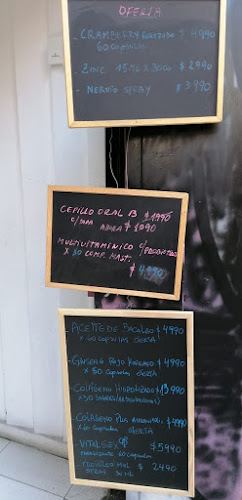 OFERTA
- CRAMBERRY $ 4990
60 capsulas
- ZINC $ 2990
- NERVIO SPRAY $ 3.990
CEPILLO ORAL B $ 1990
AHORA $ 1090
MULTIVITAMINICO C/
x 30 COMP. MAST.
$ 4.990
- ACEITE DE BACALAO $ 4990
x 60 capsulas OFERTA
- GINSENG ROJO KOREANO $ 4990
x 30 capsulas OFERTA
- COLAGENO HIDROLIZADO $ 13.990
x 30
- COLAGENO PLUS $ 4990
x 60 capsulas OFERTA
- VITALSEX $ 5990
60 capsulas
$ 2490